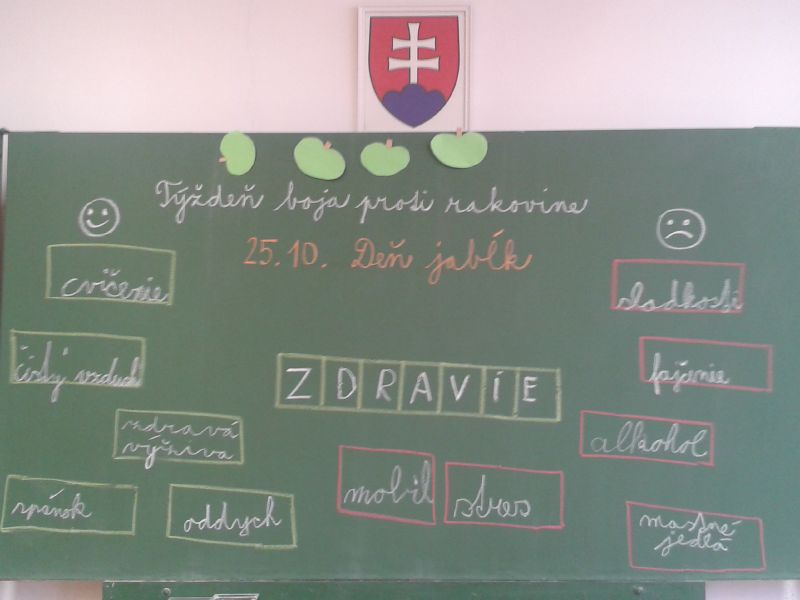 Týždeň boja proti rakovine
25.10. Deň jabĺk
cvičenie
sladkosti
čistý vzduch
fajčenie
ZDRAVIE
zdravá
výživa
alkohol
mobil
stres
spánok
oddych
mastné
jedlá